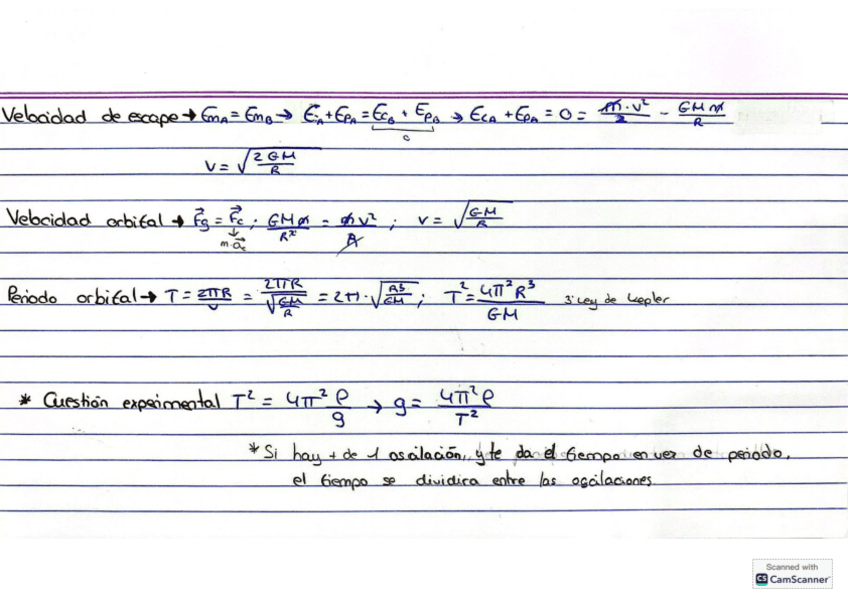 Velocidad de escape → EmA = EmB → EcA + EpA = EcB + EpB → EcA + EpA = 0 = m·v²/2 - GMm/R
0
v = √(2GM/R)
Velocidad orbital → Fg = Fc ; GMm/R² = mv²/R ; v = √(GM/R)
m·ac
Periodo orbital → T = 2πR/v = 2πR/√(GM/R) = 2π·√(R³/GM) ; T² = 4π²R³/GM 3ª Ley de Kepler
* Cuestión experimental T² = 4π² l/g → g = 4π² l/T²
* Si hay + de 1 oscilación, y te da el tiempo en vez de periodo,
el tiempo se dividira entre las oscilaciones
Scanned with
CS CamScanner